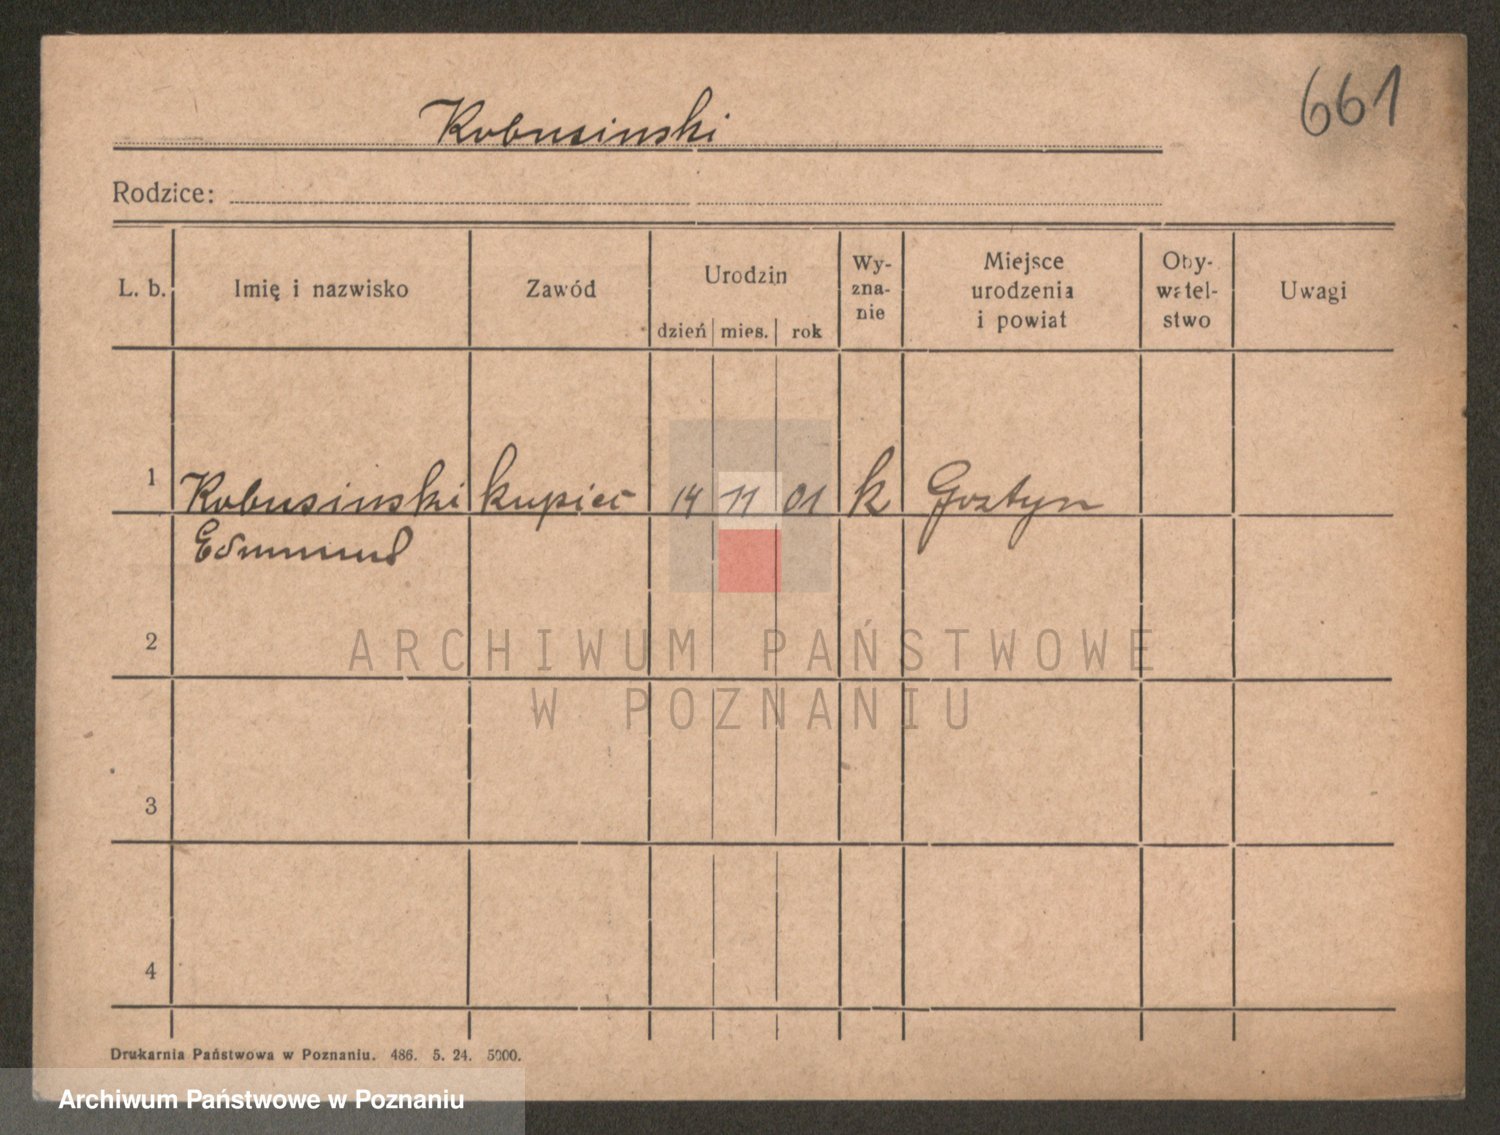 661
Kobusinski
Rodzice:
L. b. Imię i nazwisko Zawód Urodzin dzień mies. rok Wy-zna-nie Miejsce urodzenia i powiat Oby-watel-stwo Uwagi
1 Kobusinski kupiec 14 11 01 k Gostyn
Edmund
2
ARCHIWUM PAŃSTWOWE
W POZNANIU
3
4
Drukarnia Państwowa w Poznaniu. 486. 5. 24. 5000.
Archiwum Państwowe w Poznaniu